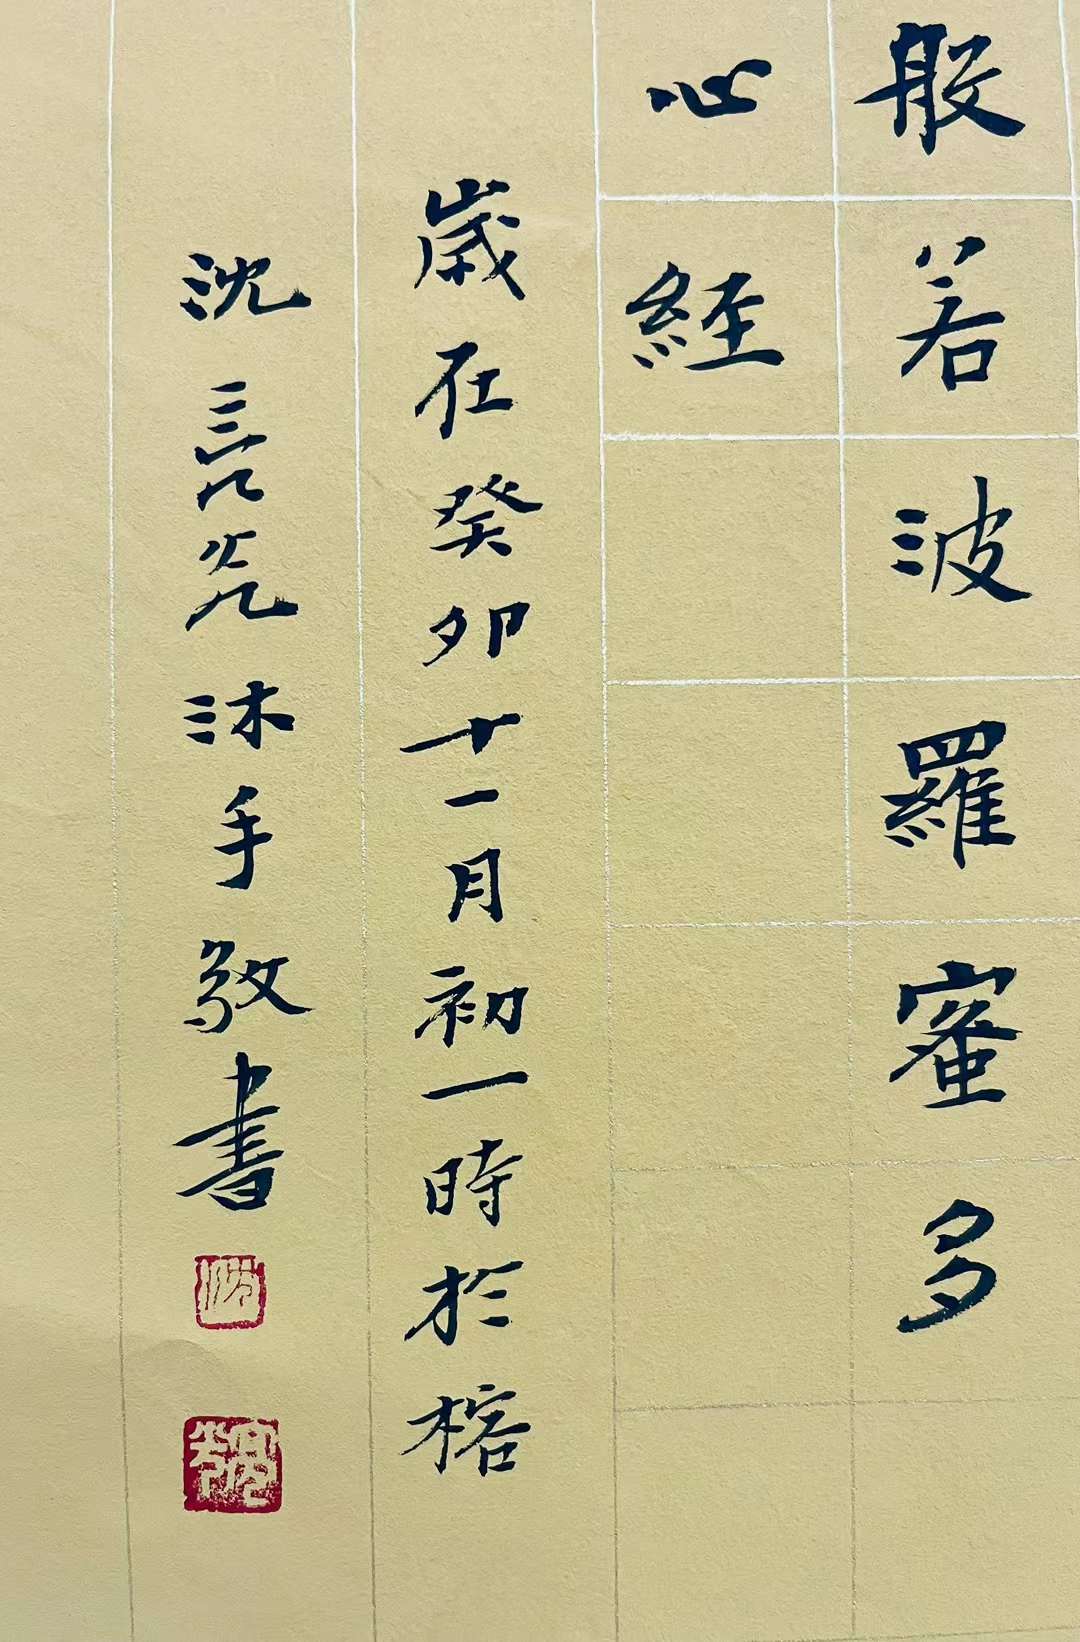 般若波羅蜜多
心經
歲在癸卯十一月初一時於榕
沈亮亮沐手敬書